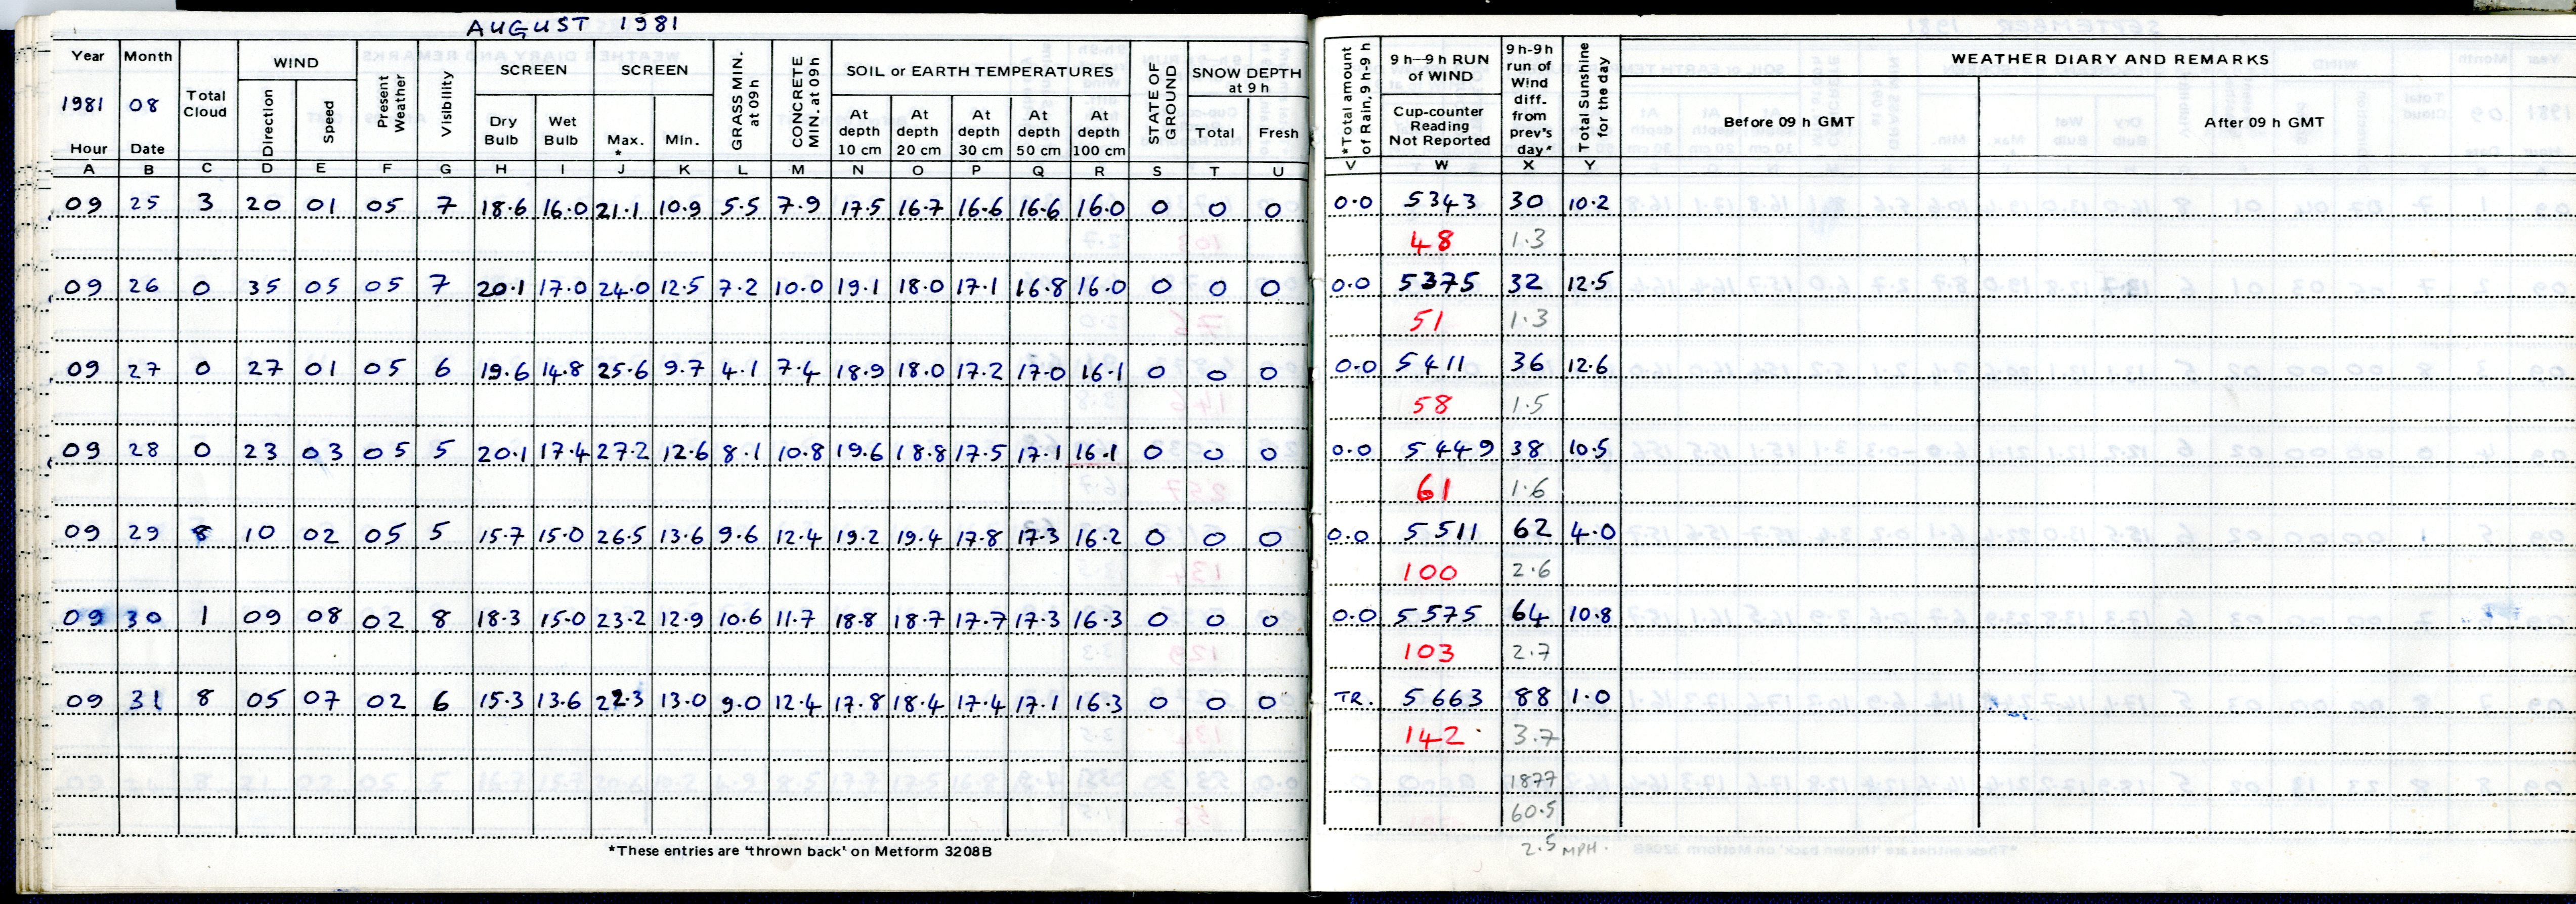 AUGUST 1981
Year Month Total Cloud WIND Present Weather Visibility SCREEN SCREEN GRASS MIN. at 09h CONCRETE MIN. at 09h SOIL or EARTH TEMPERATURES STATE OF GROUND SNOW DEPTH at 9 h *Total amount of Rain, 9h-9 h 9 h—9 h RUN of WIND 9 h-9 h run of Wind diff- from prev's day* Total Sunshine for the day WEATHER DIARY AND REMARKS
1981 08 Direction Speed Dry Bulb Wet Bulb Max. * Min. At depth 10 cm At depth 20 cm At depth 30 cm At depth 50 cm At depth 100 cm Total Fresh Cup-counter Reading Not Reported Before 09 h GMT After 09 h GMT
Hour Date
A B C D E F G H I J K L M N O P Q R S T U V W X Y
09 25 3 20 01 05 7 18.6 16.0 21.1 10.9 5.5 7.9 17.5 16.7 16.6 16.6 16.0 0 0 0 0.0 5343 30 10.2
48 1.3
09 26 0 35 05 05 7 20.1 17.0 24.0 12.5 7.2 10.0 19.1 18.0 17.1 16.8 16.0 0 0 0 0.0 5375 32 12.5
51 1.3
09 27 0 27 01 05 6 19.6 14.8 25.6 9.7 4.1 7.4 18.9 18.0 17.2 17.0 16.1 0 0 0 0.0 5411 36 12.6
58 1.5
09 28 0 23 03 05 5 20.1 17.4 27.2 12.6 8.1 10.8 19.6 18.8 17.5 17.1 16.1 0 0 0 0.0 5449 38 10.5
61 1.6
09 29 8 10 02 05 5 15.7 15.0 26.5 13.6 9.6 12.4 19.2 19.4 17.8 17.3 16.2 0 0 0 0.0 5511 62 4.0
100 2.6
09 30 1 09 08 02 8 18.3 15.0 23.2 12.9 10.6 11.7 18.8 18.7 17.7 17.3 16.3 0 0 0 0.0 5575 64 10.8
103 2.7
09 31 8 05 07 02 6 15.3 13.6 22.3 13.0 9.0 12.4 17.8 18.4 17.4 17.1 16.3 0 0 0 TR. 5663 88 1.0
142 3.7
1877
60.5
*These entries are 'thrown back' on Metform 3208B
2.5 MPH.